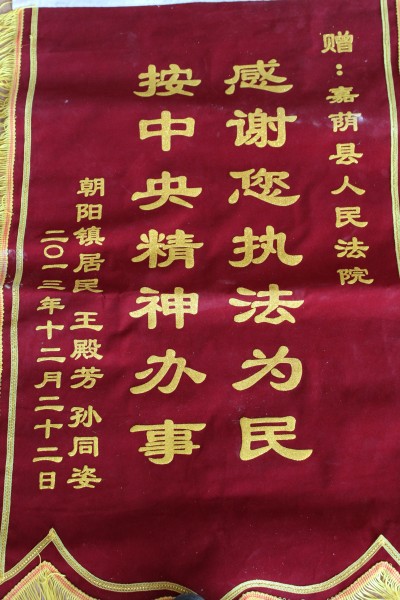 赠：嘉荫县人民法院
感谢您执法为民
按中央精神办事
朝阳镇居民 王殿芳 孙同姿
二〇一三年十二月二十二日